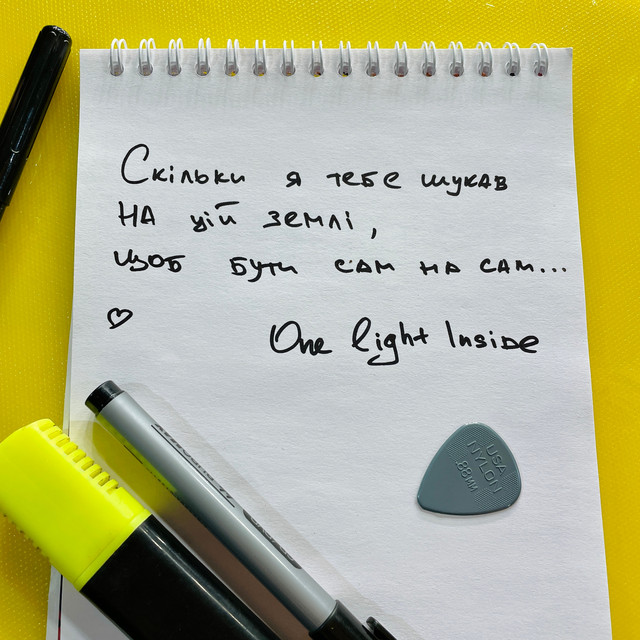 Скільки я тебе шукав
на цій землі,
щоб бути сам на сам...
♡
One light Inside
USA
NYLON
.88MM